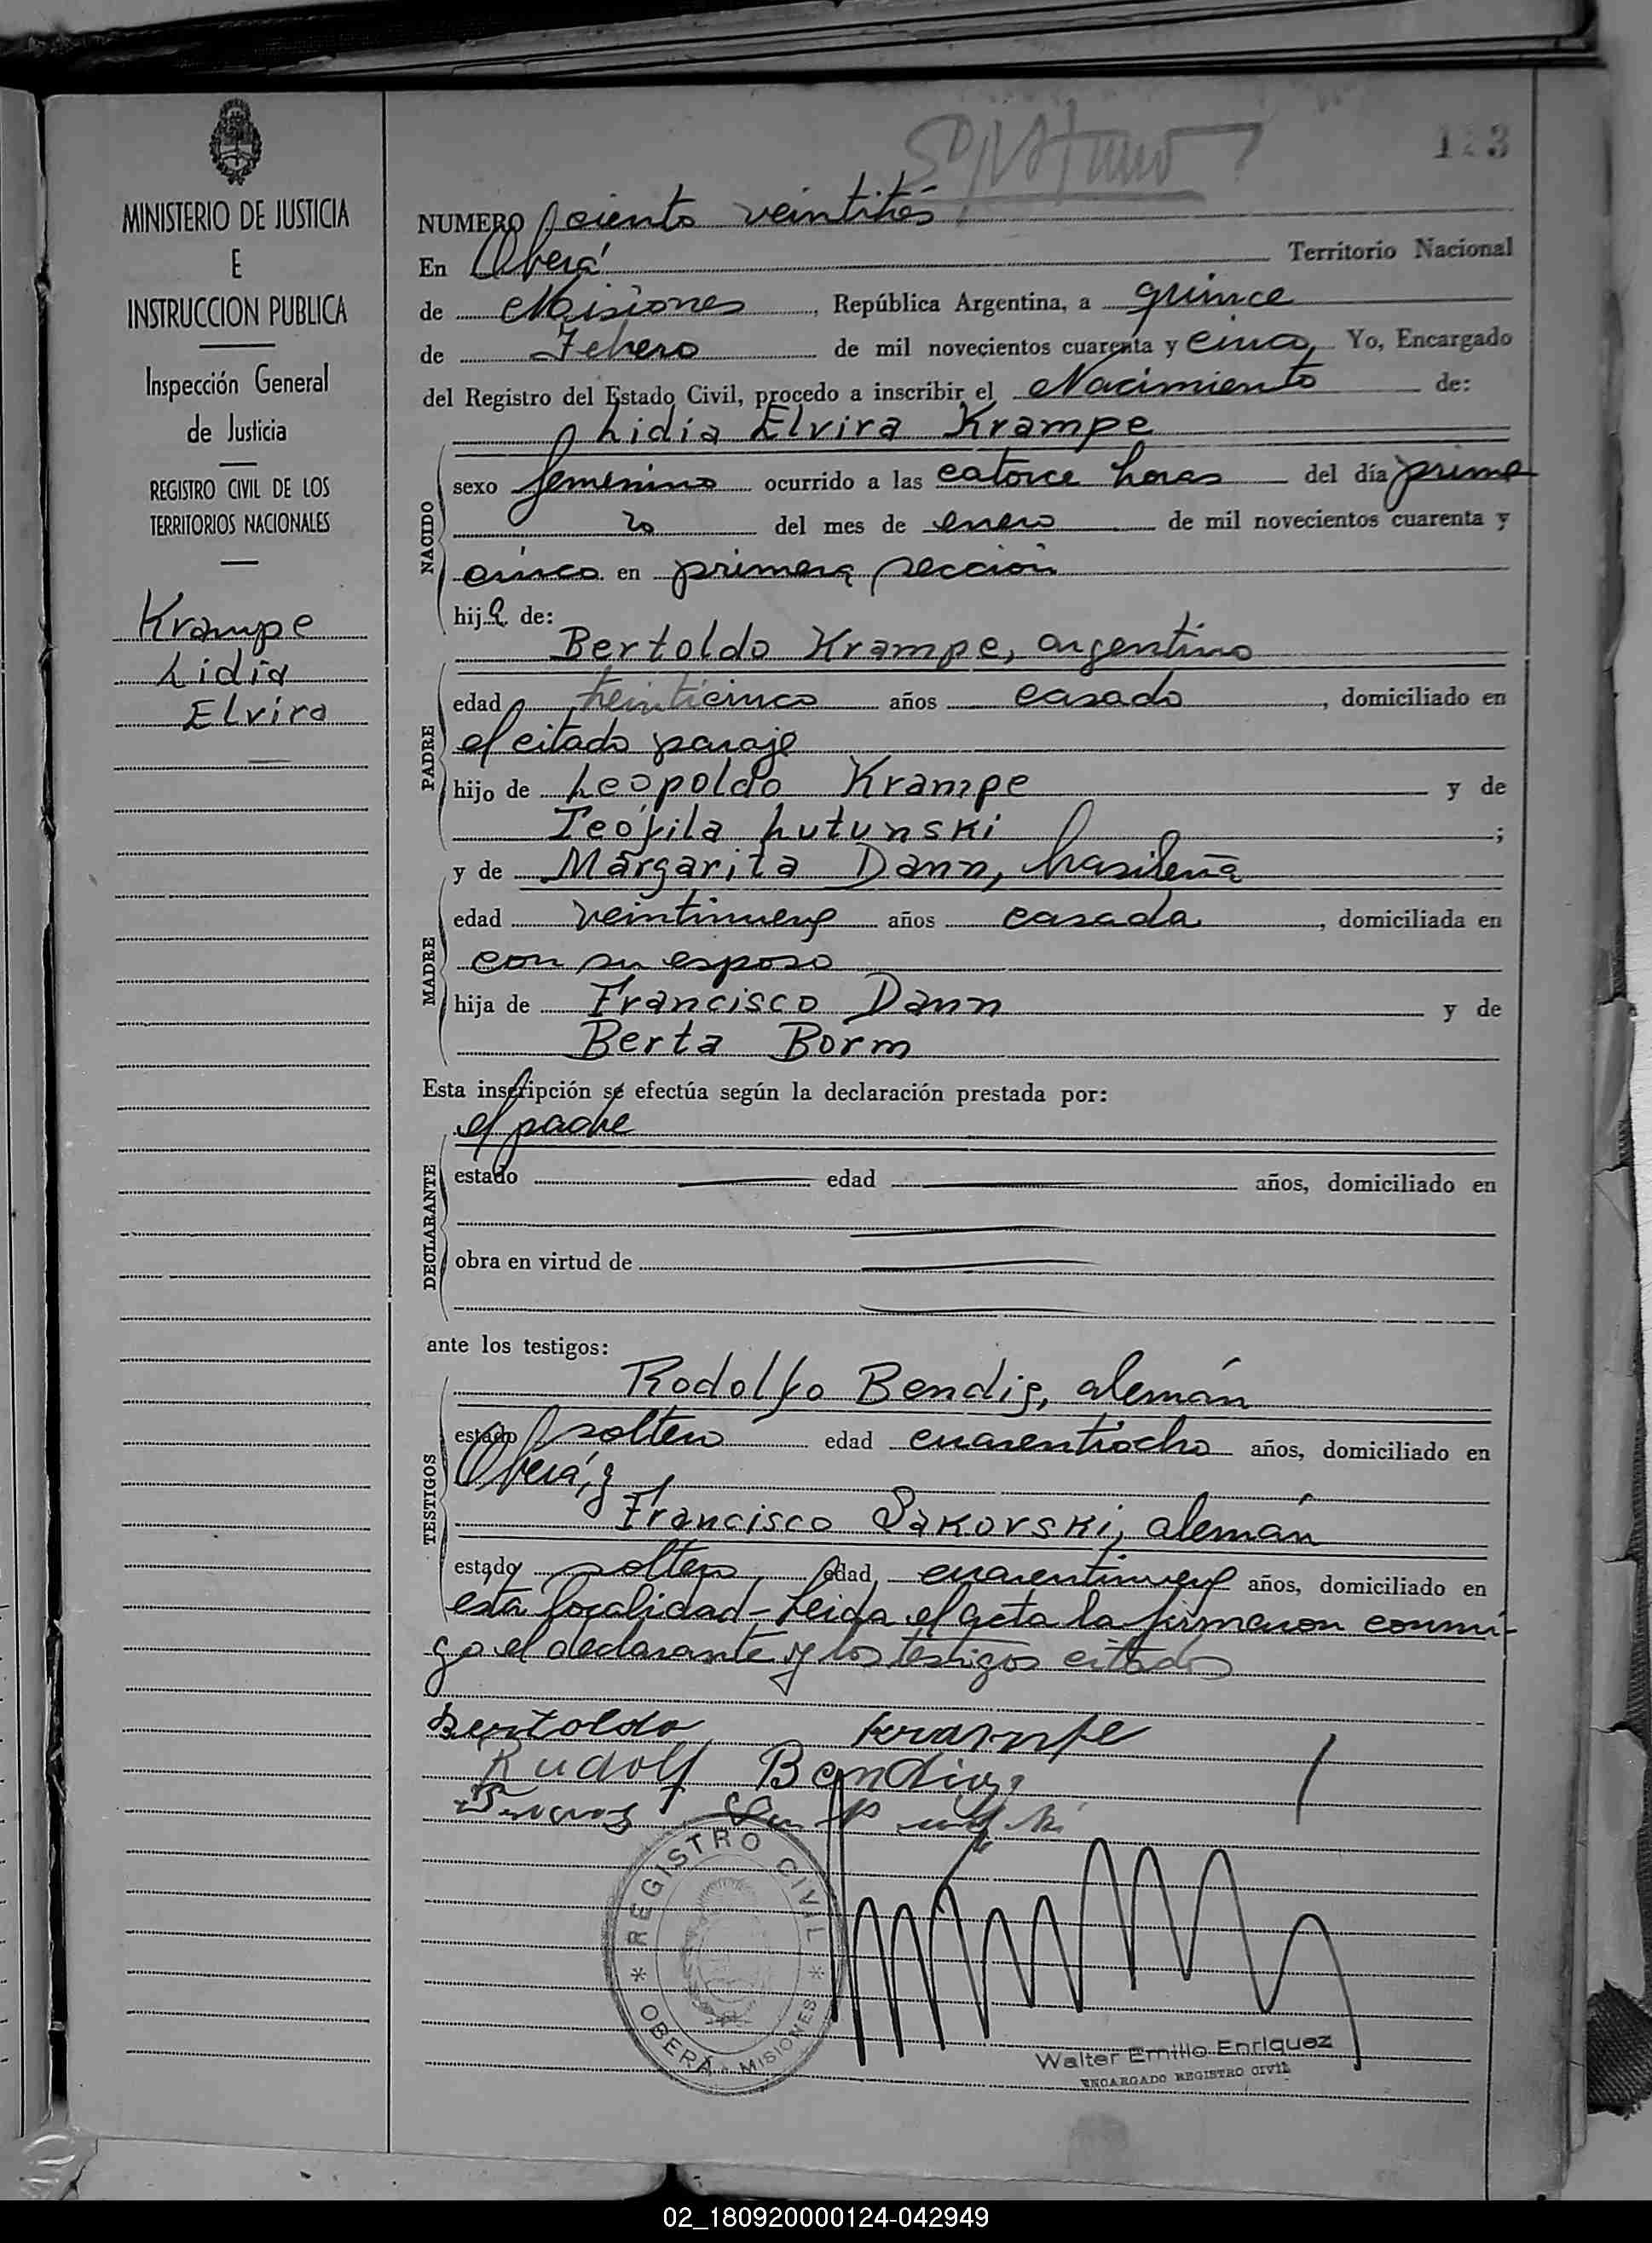 123
MINISTERIO DE JUSTICIA
E
INSTRUCCION PUBLICA
Inspección General
de Justicia
REGISTRO CIVIL DE LOS
TERRITORIOS NACIONALES
Krampe
Lidia
Elvira
NUMERO ciento veintitrés
En Oberá Territorio Nacional
de Misiones, República Argentina, a quince
de Febrero de mil novecientos cuarenta y cinco, Yo, Encargado
del Registro del Estado Civil, procedo a inscribir el Nacimiento de:
Lidia Elvira Krampe
NACIDO
sexo femenino ocurrido a las catorce horas del día prime
ro del mes de enero de mil novecientos cuarenta y
cinco en primera sección
hija de:
Bertoldo Krampe, argentino
PADRE
edad treinticinco años casado, domiciliado en
el citado paraje
hijo de Leopoldo Krampe y de
Teófila Lutunski;
y de Margarita Dann, brasileña
MADRE
edad veintinueve años casada, domiciliada en
con su esposo
hija de Francisco Dann y de
Berta Borm
Esta inscripción se efectúa según la declaración prestada por:
el padre
DECLARANTE
estado edad años, domiciliado en
obra en virtud de
ante los testigos:
Rodolfo Bendig, alemán
TESTIGOS
estado soltero edad cuarentiocho años, domiciliado en
Oberá, y
Francisco Sakovski, alemán
estado soltero, edad cuarentinueve años, domiciliado en
esta localidad - Leida el acta la firmaron conmi-
go el declarante y los testigos citados
Bertoldo Krampe
Rudolf Bendig
REGISTRO CIVIL
* OBERÁ - MISIONES *
Walter Emilio Enriquez
ENCARGADO REGISTRO CIVIL
02_180920000124-042949